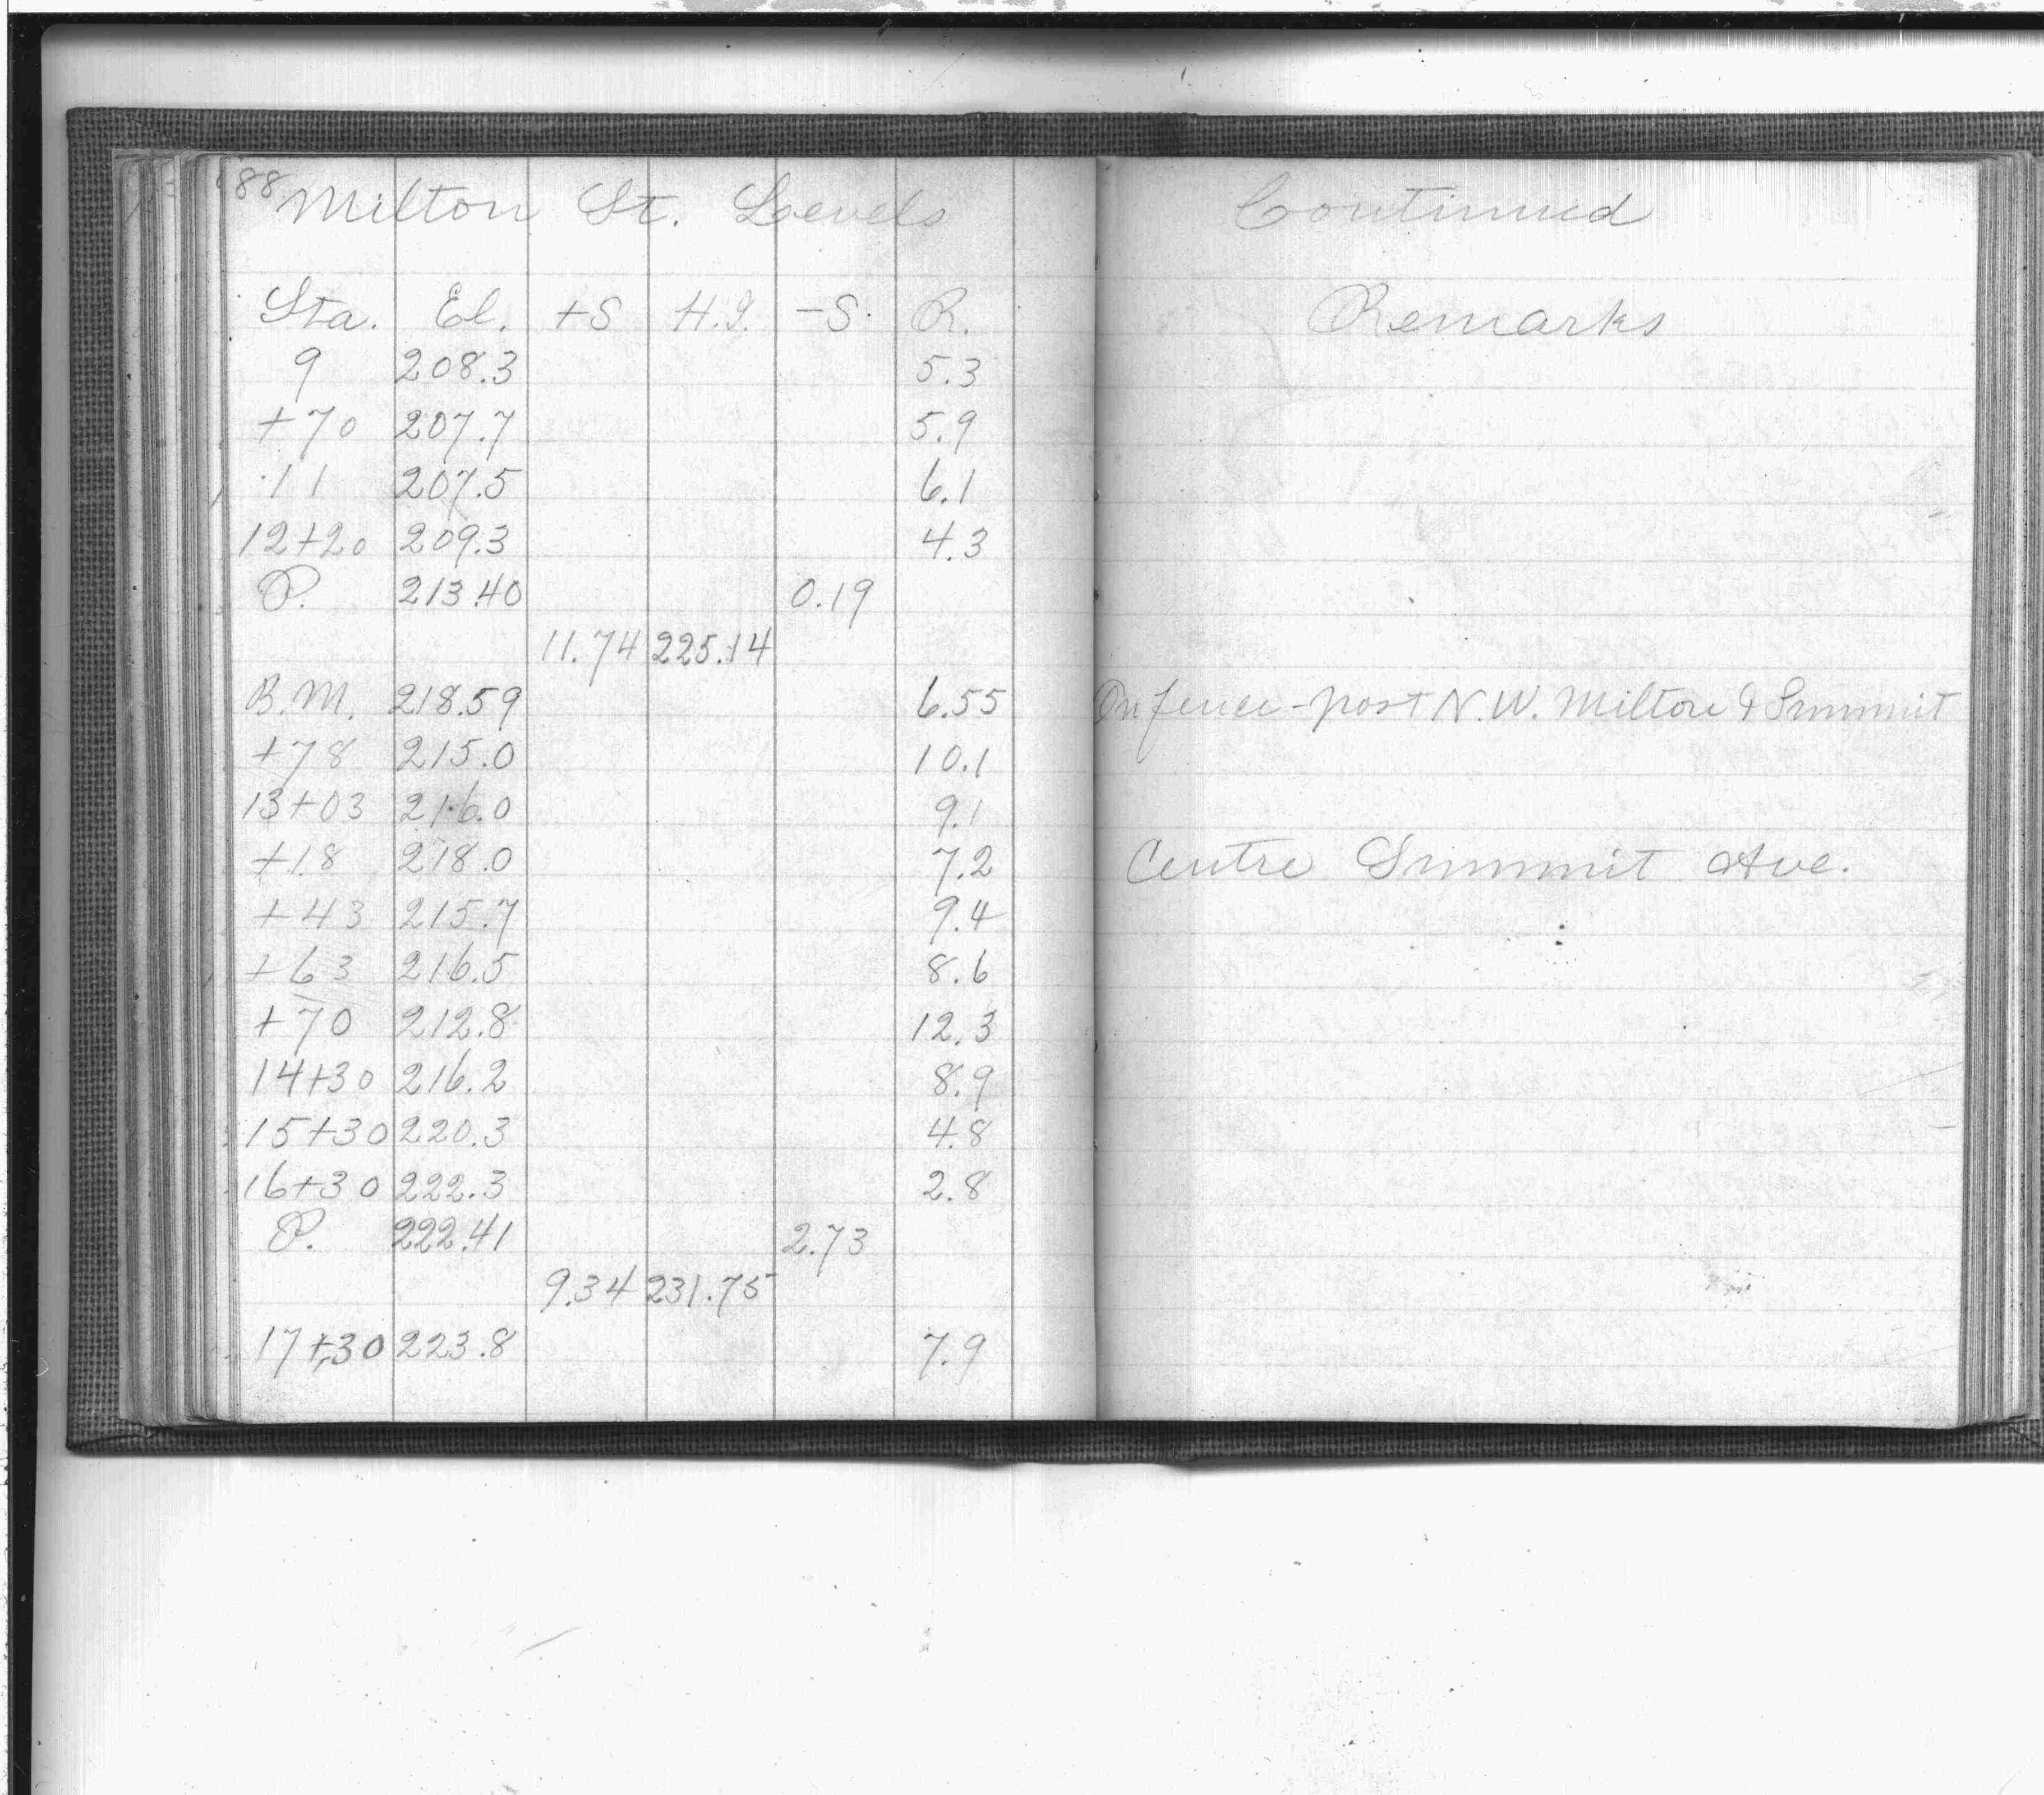 88
Milton St. Levels Continued
Sta. El. +S H.I. -S. R. Remarks
9 208.3 5.3
+70 207.7 5.9
11 207.5 6.1
12+20 209.3 4.3
P. 213.40 0.19
11.74 225.14
B.M. 218.59 6.55 On fence-post N.W. Milton & Summit
+78 215.0 10.1
13+03 216.0 9.1
+18 218.0 7.2 Centre Summit Ave.
+43 215.7 9.4
+63 216.5 8.6
+70 212.8 12.3
14+30 216.2 8.9
15+30 220.3 4.8
16+30 222.3 2.8
P. 222.41 2.73
9.34 231.75
17+30 223.8 7.9